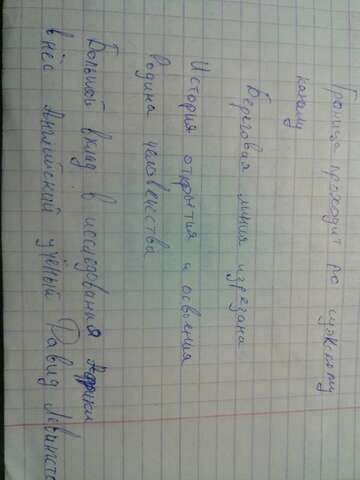 Граница проходит по суэк.кому
каналу
Береговая линия изрезана
История открытия и освоения
Родина человечества
Большой вклад в исследования Африки
внёс Английский учёный Давид Ливингсто